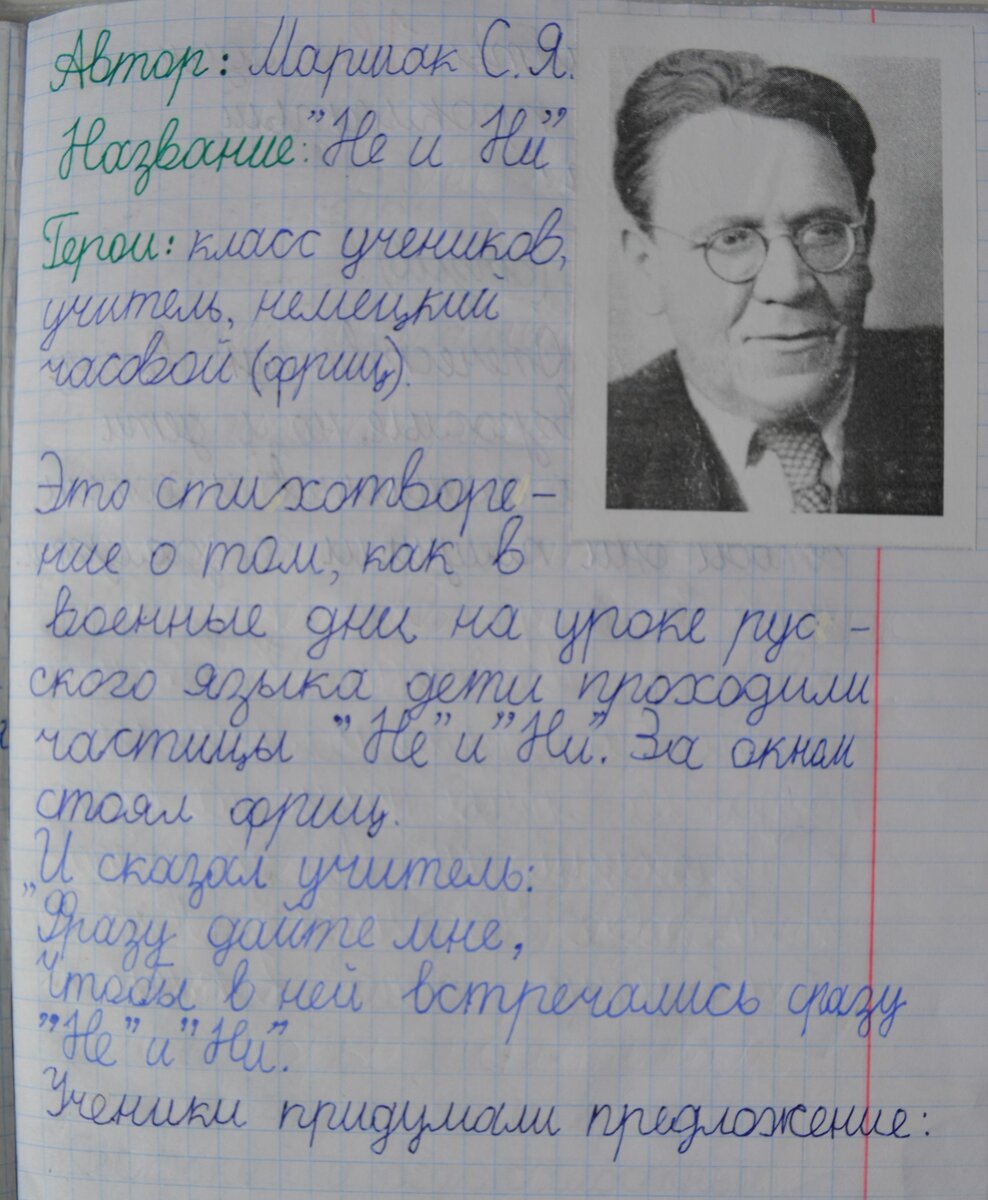 Автор: Маршак С.Я.
Название: "Не и Ни"
Герои: класс учеников,
учитель, немецкий
часовой (фриц).
Это стихотворе-
ние о том, как в
военные дни на уроке рус-
ского языка дети проходили
частицы "Не" и "Ни". За окном
стоял фриц.
И сказал учитель:
"Фразу дайте мне,
Чтобы в ней встречались сразу
"Не" и "Ни".
Ученики придумали предложение: